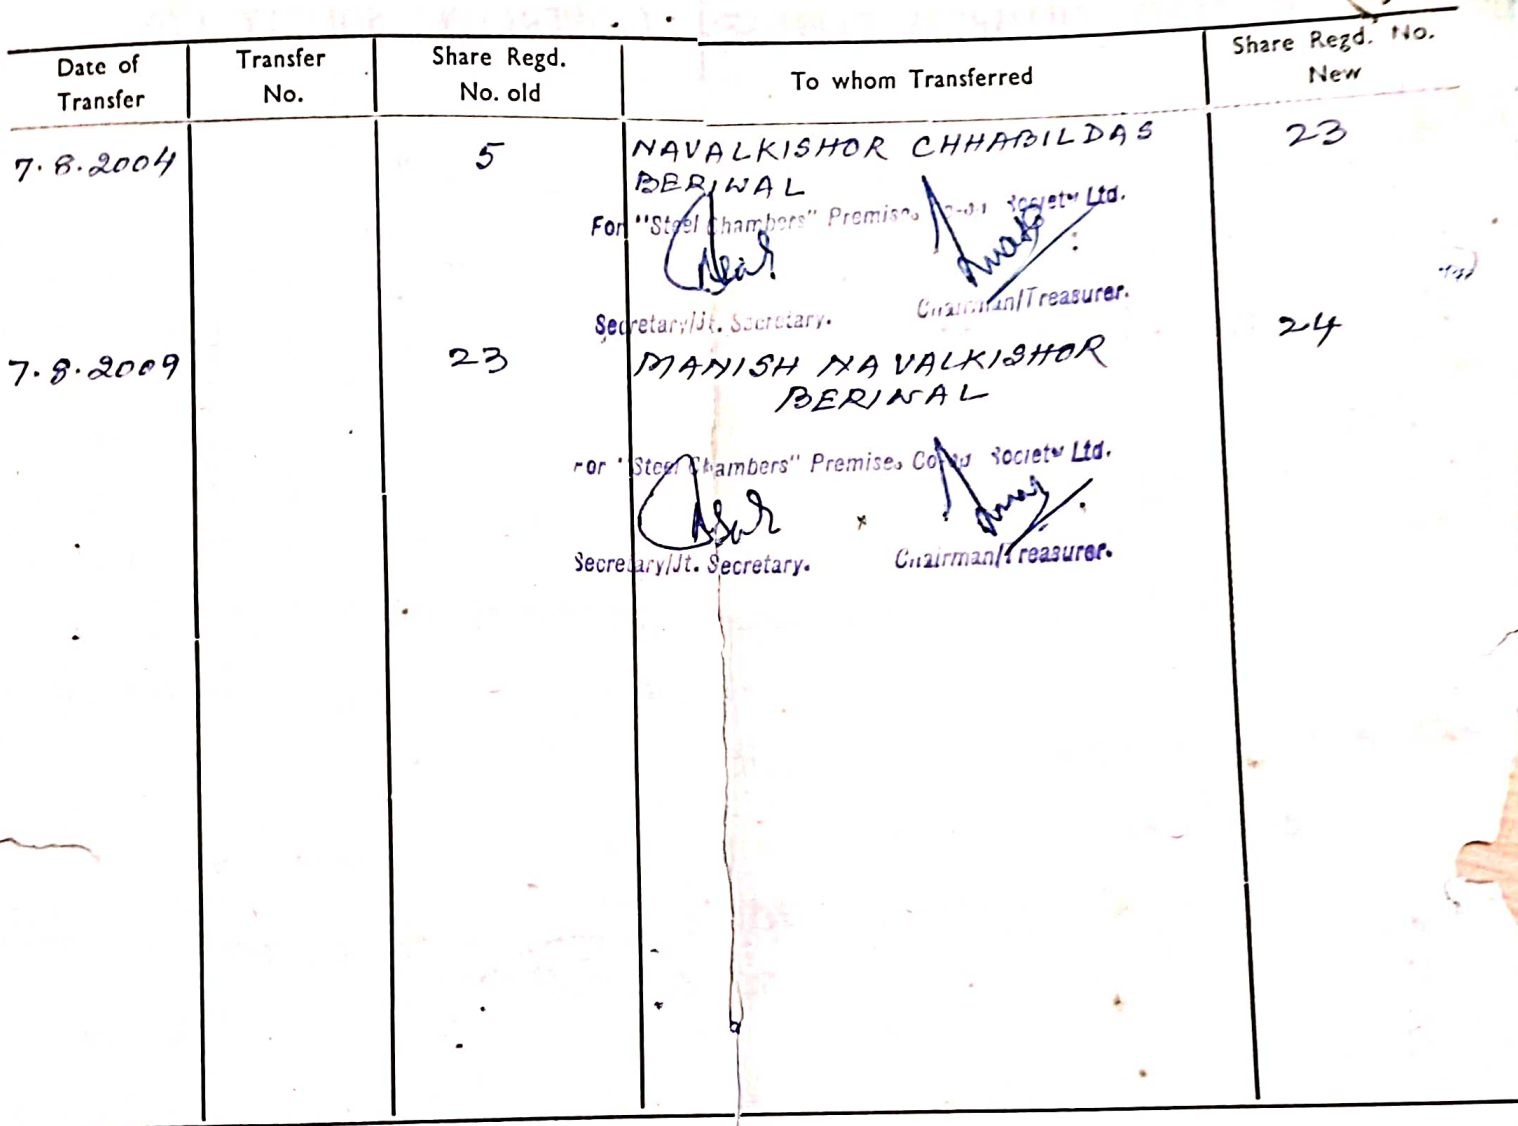 Date of Transfer
Transfer No.
Share Regd. No. old
To whom Transferred
Share Regd. No. New
7.8.2004
5
NAVALKISHOR CHHABILDAS
23
BERIWAL
For "Steel Chambers" Premises Society Ltd.
Secretary/Jt. Secretary.
Chairman/Treasurer.
7.8.2009
23
MANISH NAVALKISHOR
24
BERIWAL
For "Steel Chambers" Premises Society Ltd.
Secretary/Jt. Secretary.
Chairman/Treasurer.